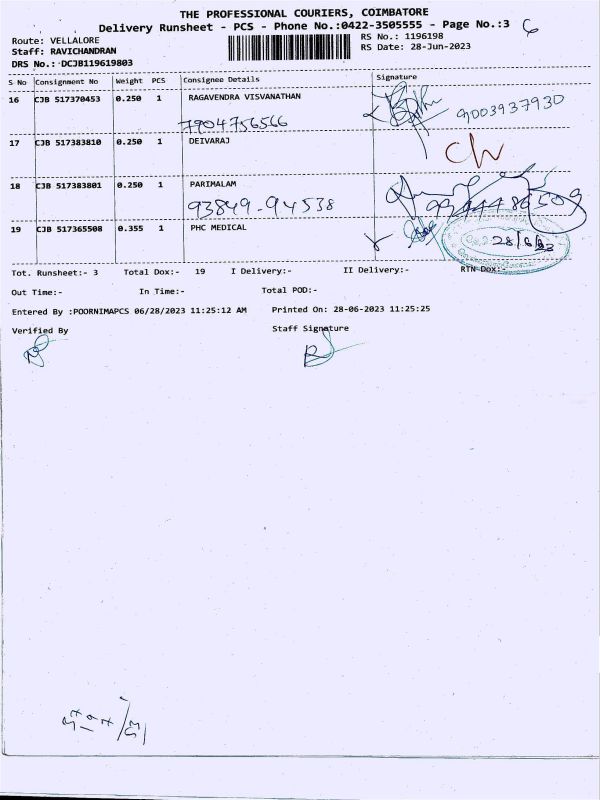 THE PROFESSIONAL COURIERS, COIMBATORE
Delivery Runsheet - PCS - Phone No.:0422-3505555 - Page No.:3
Route: VELLALORE
RS No.: 1196198
Staff: RAVICHANDRAN
RS Date: 28-Jun-2023
DRS No.: DCJB119619803
S No Consignment No Weight PCS Consignee Details Signature
16 CJB 517370453 0.250 1 RAGAVENDRA VISVANATHAN
7904756566 9003937930
17 CJB 517383810 0.250 1 DEIVARAJ
18 CJB 517383801 0.250 1 PARIMALAM
93849-94538
19 CJB 517365508 0.355 1 PHC MEDICAL
28/6/23
Tot. Runsheet:- 3 Total Dox:- 19 I Delivery:- II Delivery:- RTN Dox:-
Out Time:- In Time:- Total POD:-
Entered By :POORNIMAPCS 06/28/2023 11:25:12 AM Printed On: 28-06-2023 11:25:25
Verified By Staff Signature